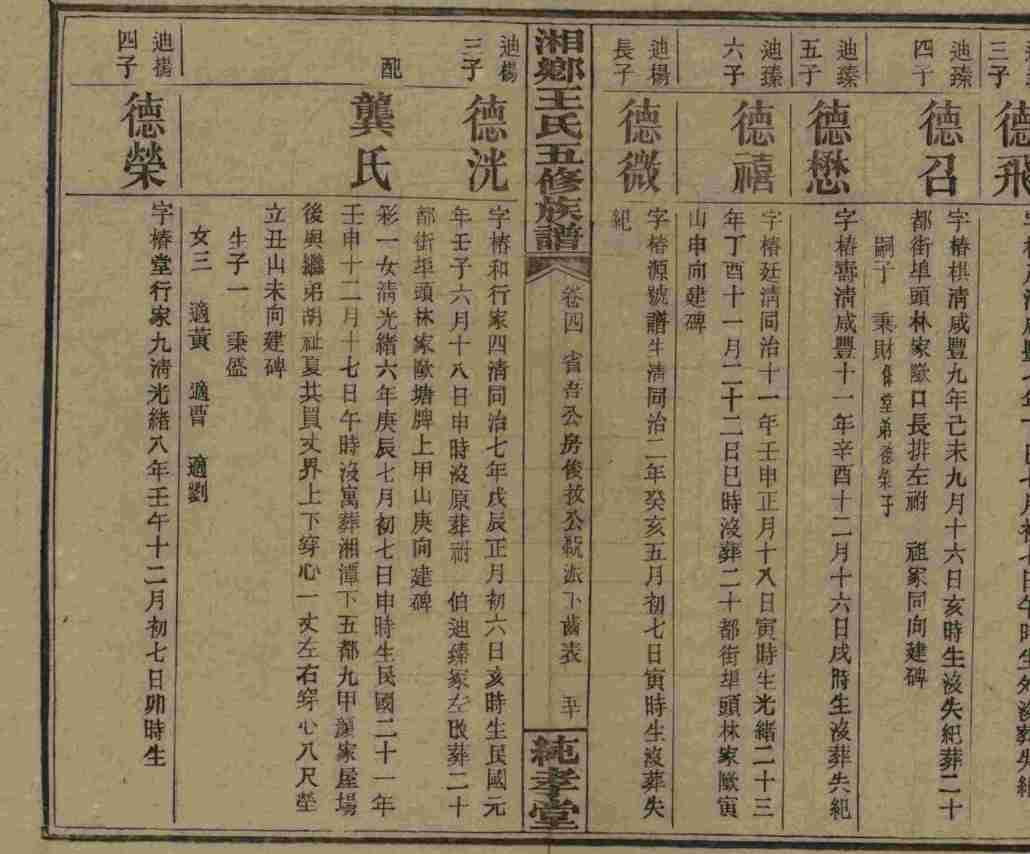 三子
德飛
迪臻
四子
德召
字椿棋清咸豐九年己未九月十六日亥時生沒失紀葬二十
都街埠頭林家歐口長排左祔 祖冢同向建碑
嗣子 秉財係堂弟德榮子
迪臻
五子
德懋
字椿壽清咸豐十一年辛酉十二月十六日戌時生沒葬失紀
迪臻
六子
德禧
字椿廷清同治十一年壬申正月十八日寅時生光緒二十三
年丁酉十一月二十二日巳時沒葬二十都街埠頭林家歐寅
山申向建碑
迪楊
長子
德微
字椿源號譜生清同治二年癸亥五月初七日寅時生沒葬失
紀
湘鄉王氏五修族譜
卷四 省吾公房後 公派下齒表
純孝堂
迪楊
三子
德洸
字椿和行家四清同治七年戊辰正月初六日亥時生民國元
年壬子六月十八日申時沒原葬祔 伯迪臻冢左改葬二十
都街埠頭林家歐塘牌上甲山庚向建碑
配
龔氏
彩一女清光緒六年庚辰七月初七日申時生民國二十一年
壬申十二月十七日午時沒寓葬湘潭下五都九甲顏家屋場
後與繼弟胡祉夏共買丈界上下穿心一丈左右穿心八尺塋
立丑山未向建碑
生子一 秉盛
女三 適黃 適曹 適劉
迪楊
四子
德榮
字椿堂行家九清光緒八年壬午十二月初七日卯時生